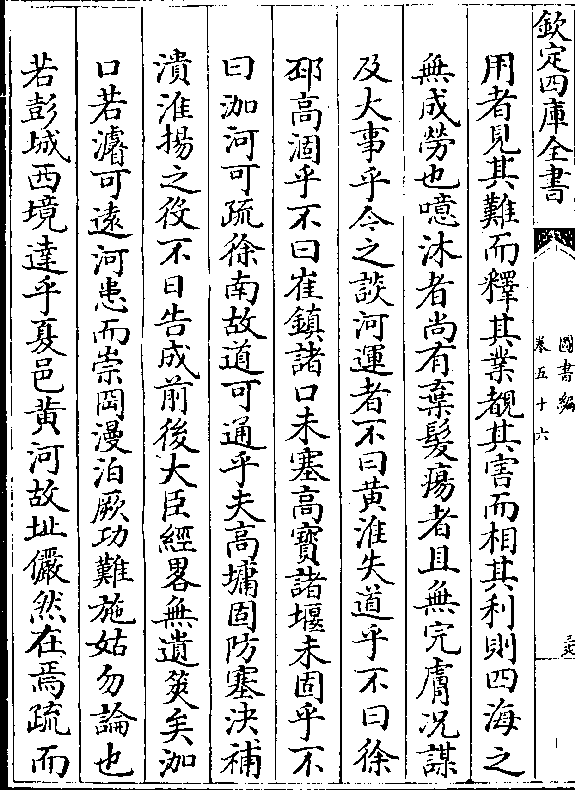 欽定四庫全書
圖書編
卷五十六
用者見其難而釋其業覩其害而相其利則四海之
無成勞也噫沐者尚有棄髮瘍者且無完膚况謀
及大事乎今之談河運者不曰黄淮失道乎不曰徐
邳高涸乎不曰崔鎮諸口未塞高寳諸堰未固乎不
曰泇河可疏徐南故道可通乎夫高墉固防塞決補
潰淮揚之役不日告成前後大臣經畧無遺筴矣泇
口若濬可遠河患而崇岡漫泊厥功難施姑勿論也
若彭城西境達乎夏邑黄河故址儼然在焉疏而